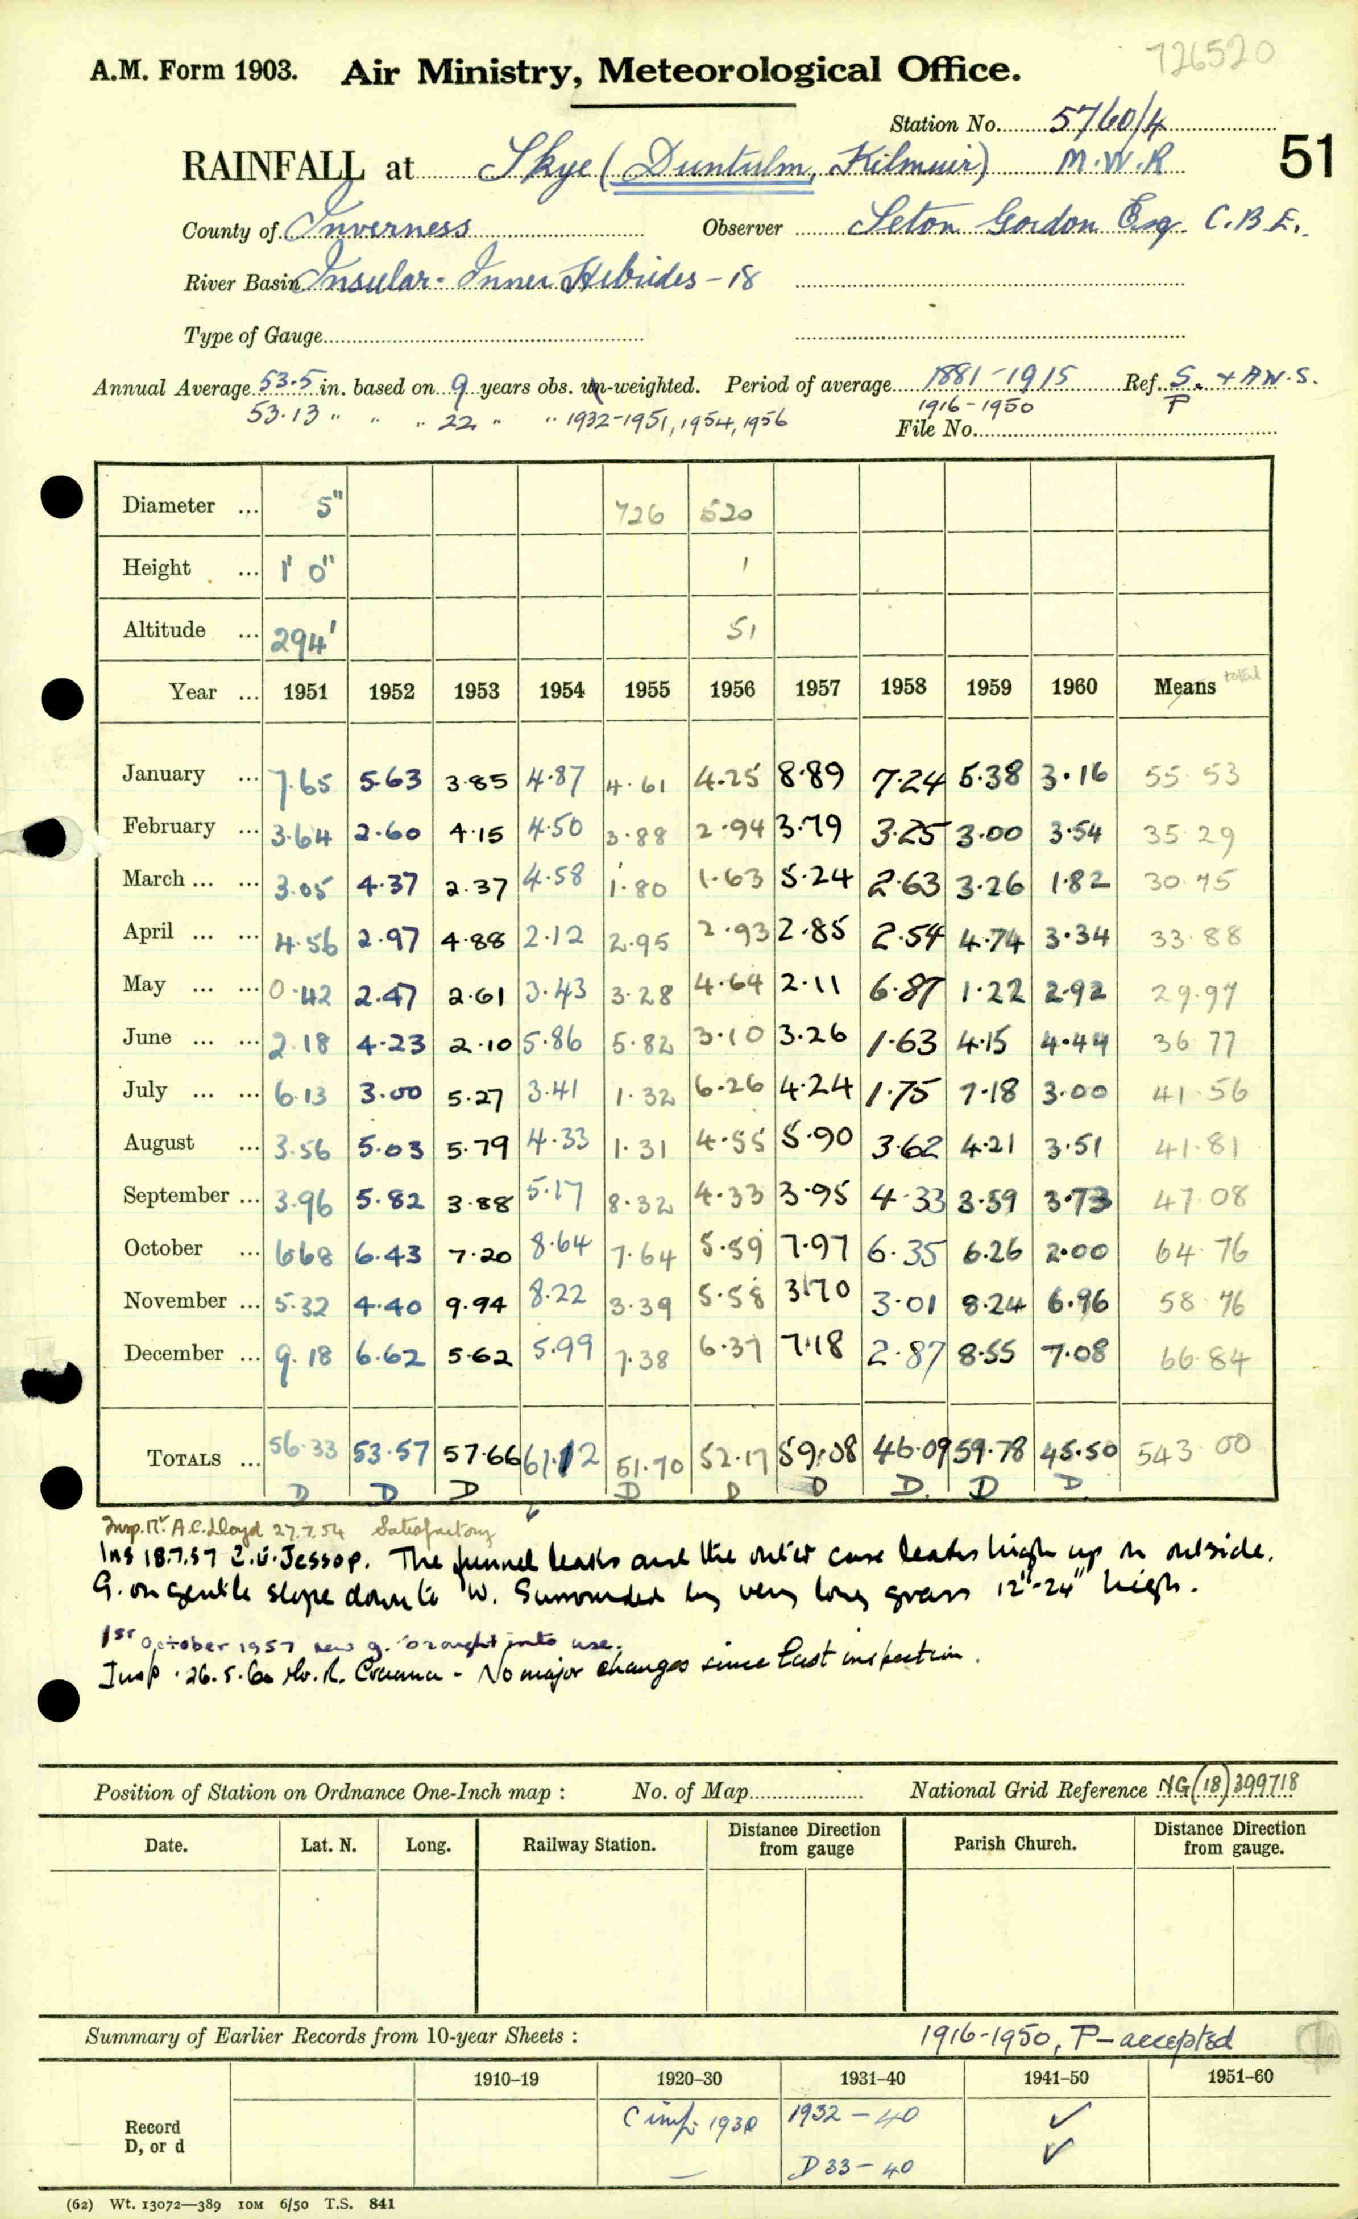 726520
A.M. Form 1903. Air Ministry, Meteorological Office.
Station No. 5760/4
RAINFALL at Skye (Duntulm, Kilmuir) M.W.R 51
County of Inverness Observer Seton Gordon Esq. C.B.E.
River Basin Insular - Inner Hebrides - 18
Type of Gauge
Annual Average 53.5 in. based on 9 years obs. un-weighted. Period of average 1881-1915 Ref. S. & A.W.S.
53.13 " " " 22 " " 1932-1951, 1954, 1956 1916-1950 P
File No.
Diameter ... 5" 726 520
Height ... 1' 0" 1
Altitude ... 294' 51
Year ... 1951 1952 1953 1954 1955 1956 1957 1958 1959 1960 Means total
January ... 7.65 5.63 3.85 4.87 4.61 4.25 8.89 7.24 5.38 3.16 55.53
February ... 3.64 2.60 4.15 4.50 3.88 2.94 3.79 3.25 3.00 3.54 35.29
March ... ... 3.05 4.37 2.37 4.58 1.80 1.63 5.24 2.63 3.26 1.82 30.75
April ... ... 4.56 2.97 4.88 2.12 2.95 2.93 2.85 2.54 4.74 3.34 33.88
May ... ... 0.42 2.47 2.61 3.43 3.28 4.64 2.11 6.87 1.22 2.92 29.97
June ... ... 2.18 4.23 2.10 5.86 5.82 3.10 3.26 1.63 4.15 4.44 36.77
July ... ... 6.13 3.00 5.27 3.41 1.32 6.26 4.24 1.75 7.18 3.00 41.56
August ... 3.56 5.03 5.79 4.33 1.31 4.55 5.90 3.62 4.21 3.51 41.81
September ... 3.96 5.82 3.88 5.17 8.32 4.33 3.95 4.33 3.59 3.73 47.08
October ... 6.68 6.43 7.20 8.64 7.64 5.59 7.97 6.35 6.26 2.00 64.76
November ... 5.32 4.40 9.94 8.22 3.39 5.58 3.70 3.01 8.24 6.96 58.76
December ... 9.18 6.62 5.62 5.99 7.38 6.37 7.18 2.87 8.55 7.08 66.84
TOTALS ... 56.33 53.57 57.66 61.12 51.70 52.17 59.08 46.09 59.78 45.50 543.00
D D D D D D D. D D
Insp. Mr A.C. Lloyd 27.7.54 Satisfactory
Ins 18.7.57 E.G. Jessop. The funnel leaks and the outer case leaks high up on outside.
G. on gentle slope down to W. Surrounded by very long grass 12"-24" high.
1st October 1957 new g. brought into use.
Insp. 26.5.60 Mr. R. - No major changes since last inspection.
Position of Station on Ordnance One-Inch map : No. of Map National Grid Reference NG(18)399718
Date. Lat. N. Long. Railway Station. Distance Direction from gauge Parish Church. Distance Direction from gauge.
Summary of Earlier Records from 10-year Sheets : 1916-1950, P-accepted
1910–19 1920–30 1931–40 1941–50 1951–60
Record C imp. 1930 1932-40 ✓
D, or d — D 33-40 ✓
(62) Wt. 13072—389 10M 6/50 T.S. 841